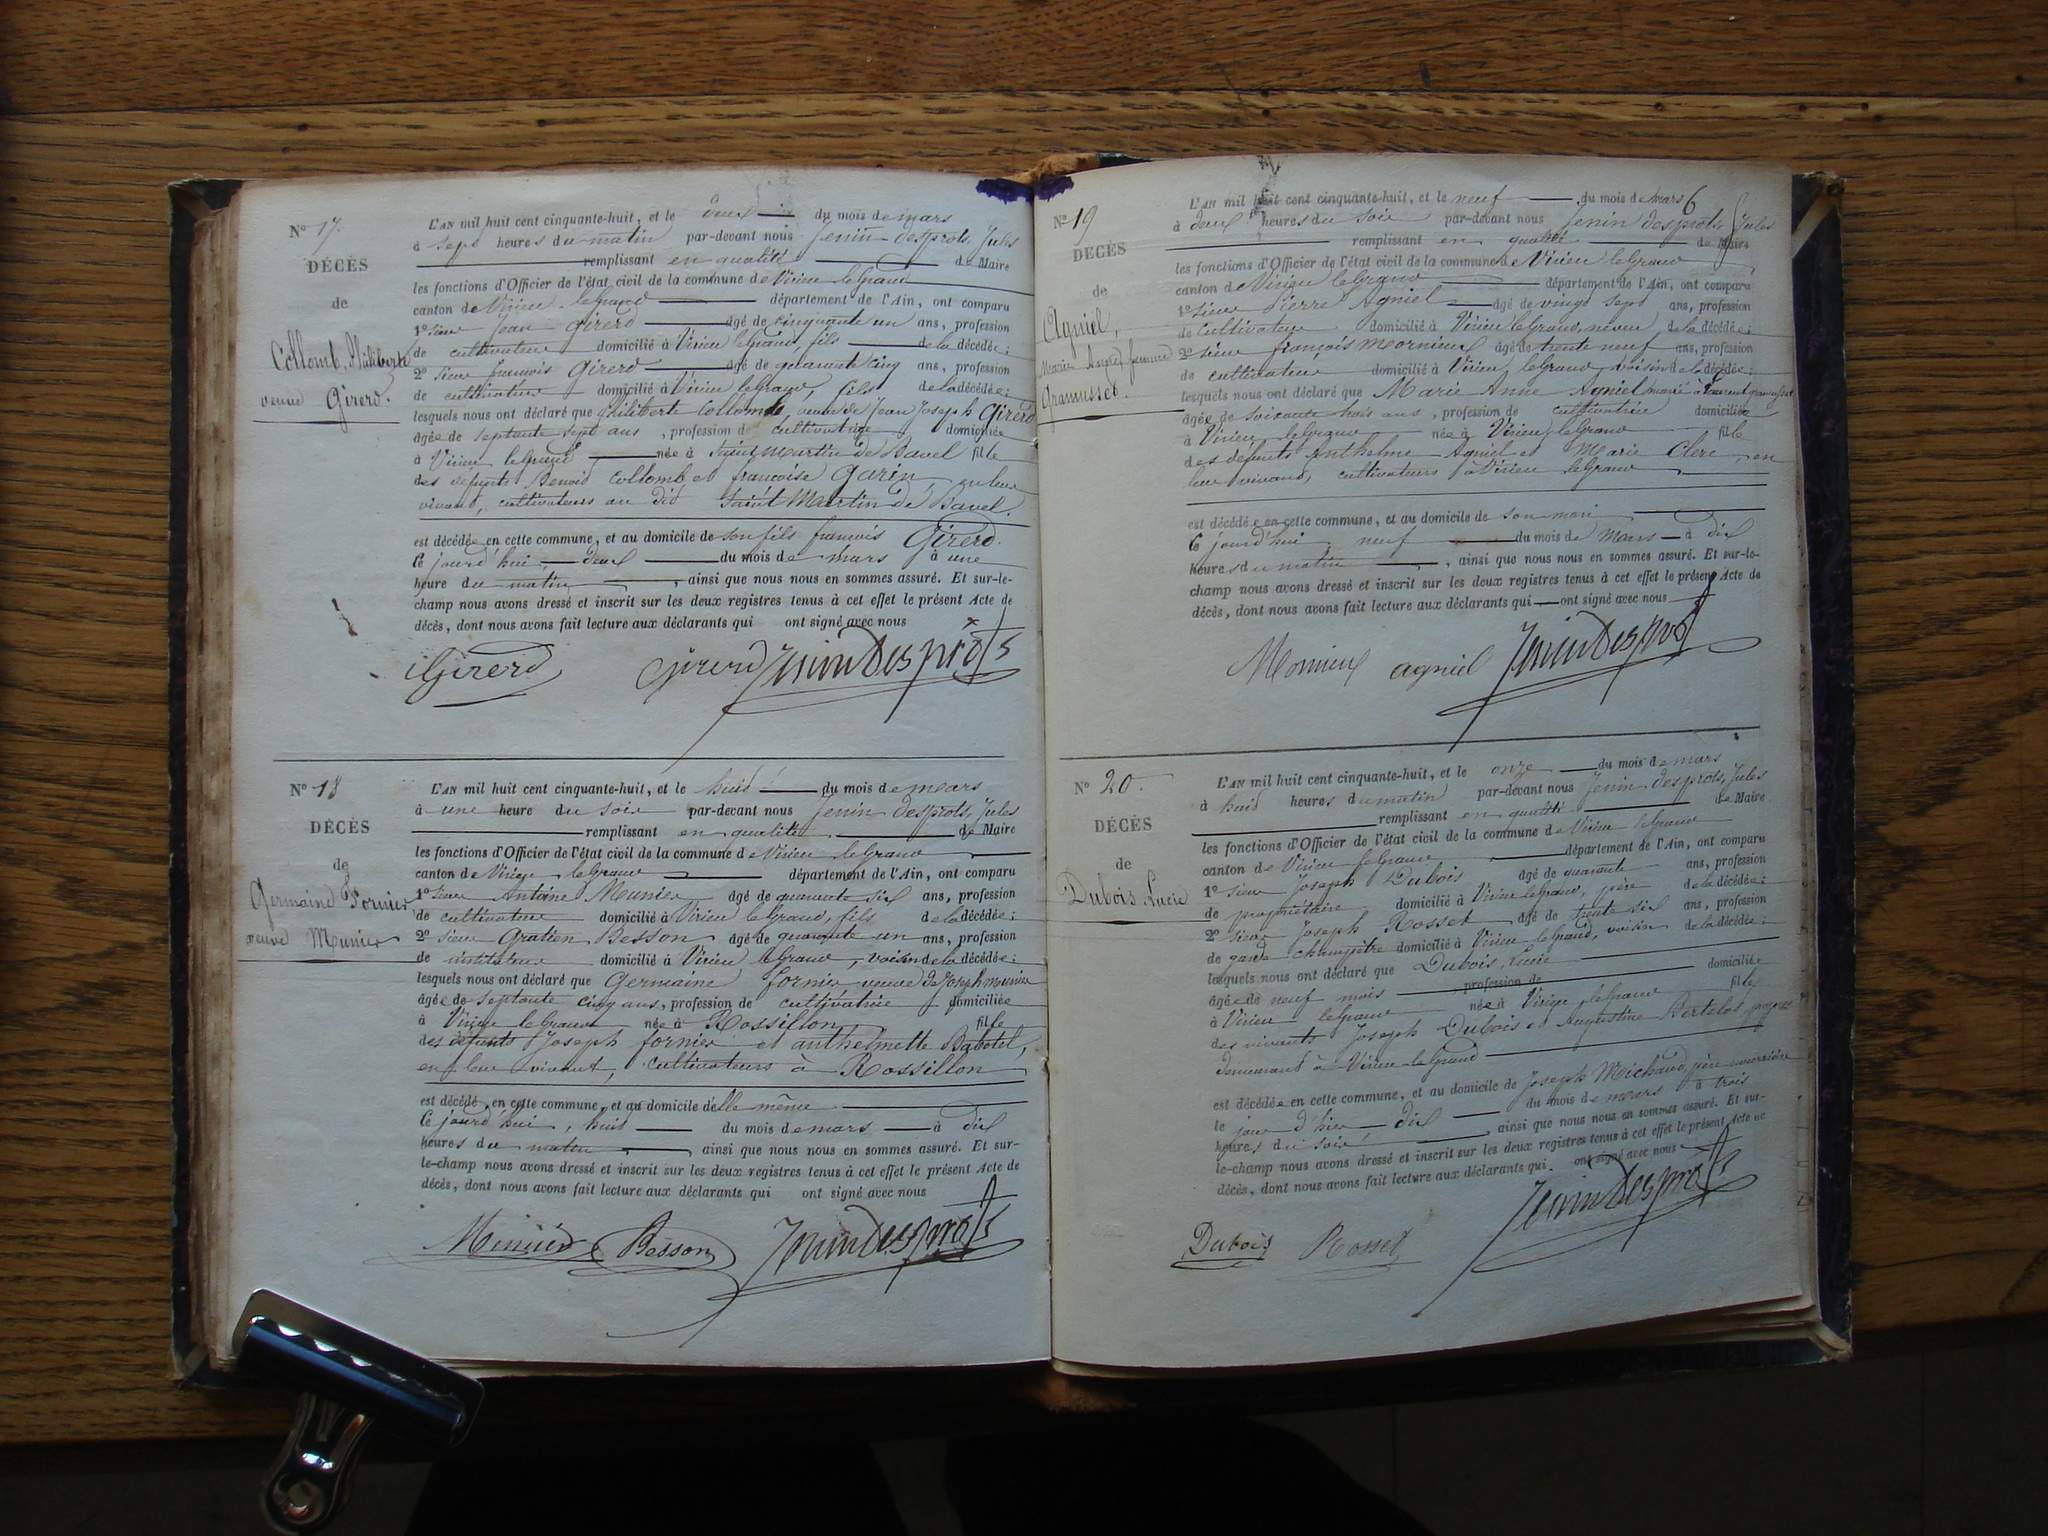 N° 17.
DÉCÈS
de
Collomb, Philiberte
veuve Girerd.
L'AN mil huit cent cinquante-huit, et le deux du mois de mars
à sept heures du matin par-devant nous Jenin desprots, Jules
remplissant en qualité de Maire
les fonctions d'Officier de l'état civil de la commune de Virieu le Grand
canton de Virieu le Grand département de l'Ain, ont comparu
1° sieur Jean Girerd âgé de cinquante un ans, profession
de cultivateur domicilié à Virieu le Grand, fils de la décédée;
2° sieur françois Girerd âgé de quarante cinq ans, profession
de cultivateur domicilié à Virieu le Grand, fils de la décédée;
lesquels nous ont déclaré que philiberte Collomb, veuve de Jean Joseph Girerd
âgée de septante sept ans, profession de cultivatrice domiciliée
à Virieu le Grand née à Saint Martin de Bavel fille
des défunts Benoid Collomb et francoise Garin, en leur
vivant, cultivateurs au did Saint Martin de Bavel.
est décédée en cette commune, et au domicile de son fils francois Girerd.
Ce jourd'hui deux du mois de mars à une
heure du matin, ainsi que nous nous en sommes assuré. Et sur-le-
champ nous avons dressé et inscrit sur les deux registres tenus à cet effet le présent Acte de
décès, dont nous avons fait lecture aux déclarants qui ont signé avec nous
Girerd Girerd Jenin Desprots
N° 18
DÉCÈS
de
Germaine Fornier
veuve Munier
L'AN mil huit cent cinquante-huit, et le huid du mois de mars
à une heure du soir par-devant nous Jenin desprots, Jules
remplissant en qualité de Maire
les fonctions d'Officier de l'état civil de la commune de Virieu le Grand
canton de Virieu le Grand département de l'Ain, ont comparu
1° sieur Antoine Munier âgé de quarante six ans, profession
de cultivateur domicilié à Virieu le Grand, fils de la décédée;
2° sieur Gratien Besson âgé de quarante un ans, profession
de instituteur domicilié à Virieu le Grand, voisin de la décédée;
lesquels nous ont déclaré que Germaine fornier veuve de Joseph munier
âgée de septante cinq ans, profession de cultivatrice domiciliée
à Virieu le Grand née à Rossillon, fille
des défunts Joseph fornier et anthelmette Babotel,
en leur vivant, cultivateurs à Rossillon
est décédé en cette commune, et au domicile d'elle même
Ce jourd'hui, huid du mois de mars à dix
heures du matin, ainsi que nous nous en sommes assuré. Et sur-
le-champ nous avons dressé et inscrit sur les deux registres tenus à cet effet le présent Acte de
décès, dont nous avons fait lecture aux déclarants qui ont signé avec nous
Munier Besson Jenin Desprots
N° 19
DÉCÈS
de
Agniel,
Marie Anne, femme
6
L'AN mil huit cent cinquante-huit, et le neuf du mois de mars
à deux heures du soir par-devant nous Jenin desprots, Jules
remplissant en qualité de Maire
les fonctions d'Officier de l'état civil de la commune de Virieu le Grand
canton de Virieu le Grand département de l'Ain, ont comparu
1° sieur Pierre Agniel âgé de vingt sept ans, profession
de cultivateur domicilié à Virieu le Grand, neveu de la décédée;
2° sieur françois Mornieux âgé de trente neuf ans, profession
de cultivateur domicilié à Virieu le Grand, voisin de la décédée;
lesquels nous ont déclaré que Marie Anne Agniel mariée à
âgée de soixante trois ans, profession de cultivatrice domiciliée
à Virieu le Grand née à Virieu le Grand fille
des défunts Anthelme Agniel et Marie Clerc, en
leur vivant, cultivateurs à Virieu le Grand
est décédée en cette commune, et au domicile de son mari
Ce jourd'hui neuf du mois de Mars à dix
heures du matin, ainsi que nous nous en sommes assuré. Et sur-le-
champ nous avons dressé et inscrit sur les deux registres tenus à cet effet le présent Acte de
décès, dont nous avons fait lecture aux déclarants qui ont signé avec nous
Mornieux agniel Jenin Desprots
N° 20.
DÉCÈS
de
Dubois, Lucie
L'AN mil huit cent cinquante-huit, et le onze du mois de mars
à huid heures du matin par-devant nous Jenin desprots, Jules
remplissant en qualité de Maire
les fonctions d'Officier de l'état civil de la commune de Virieu le Grand
canton de Virieu le Grand département de l'Ain, ont comparu
1° sieur Joseph Dubois âgé de quarante ans, profession
de propriétaire domicilié à Virieu le Grand, père de la décédée;
2° sieur Joseph Rosset âgé de trente six ans, profession
de garde champêtre domicilié à Virieu le Grand, voisin de la décédée;
lesquels nous ont déclaré que Dubois, Lucie
âgée de neuf mois, profession de domiciliée
à Virieu le Grand née à Virieu le Grand fille
des vivants Joseph Dubois et Augustine Bertelot,
demeurant à Virieu le Grand
est décédée en cette commune, et au domicile de Joseph Michaud,
le jour d'hier dix du mois de mars à trois
heures du soir, ainsi que nous nous en sommes assuré. Et sur-
le-champ nous avons dressé et inscrit sur les deux registres tenus à cet effet le présent Acte de
décès, dont nous avons fait lecture aux déclarants qui ont signé avec nous
Dubois Rosset Jenin Desprots